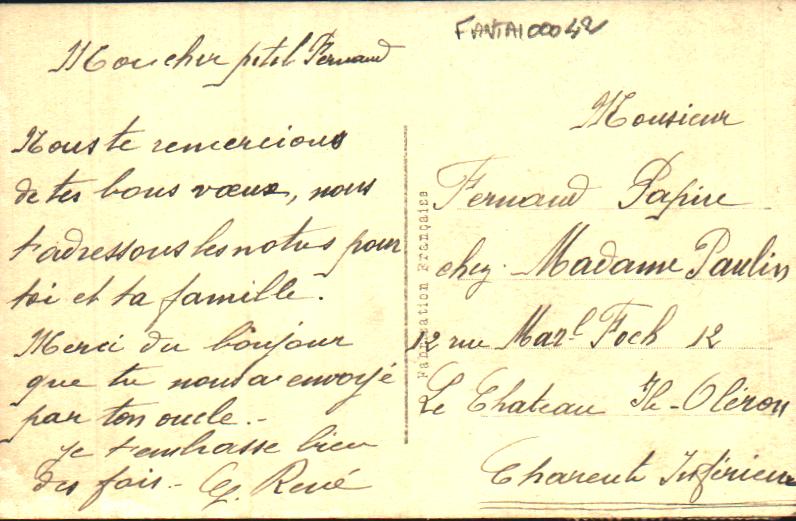 FANTAI00042
Mon cher petit Fernand
Nous te remercions
de tes bons vœux, nous
t'adressons les notres pour
toi et ta famille.
Merci du bonjour
que tu nous a envoyé
par ton oncle.-
Je t'embrasse bien
des fois.- René
Fabrication Française
Monsieur
Fernand Papire
chez Madame Paulin
12 rue Mar.l Foch 12
Le Chateau Ile-Oléron
Charente Inférieure